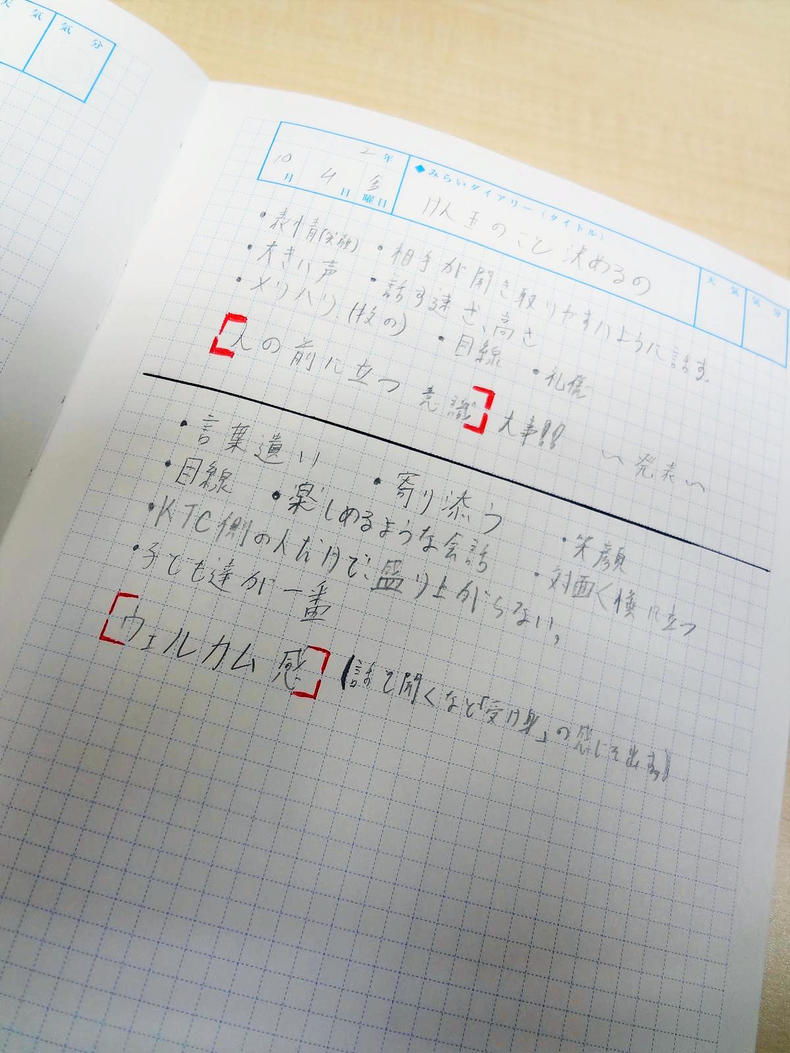 天気 気分
2年
10月 4日 金曜日
◆みらいダイアリー(タイトル)
けん玉のこと決めるの
天気 気分
・表情(笑顔) ・相手が聞き取りやすいように話す。
・大きい声 ・話す速さ、高さ
・メリハリ(技の) ・目線 ・礼儀
「人の前に立つ意識」大事!! 〜発表〜
・言葉遣い ・寄り添う ・笑顔
・目線 ・楽しめるような会話 ・対面く横に立つ
・KTC側の人だけで、盛り上がらない,
・子ども達が一番
「ウェルカム感」(話て聞くなど「受け身」の感じを出す)